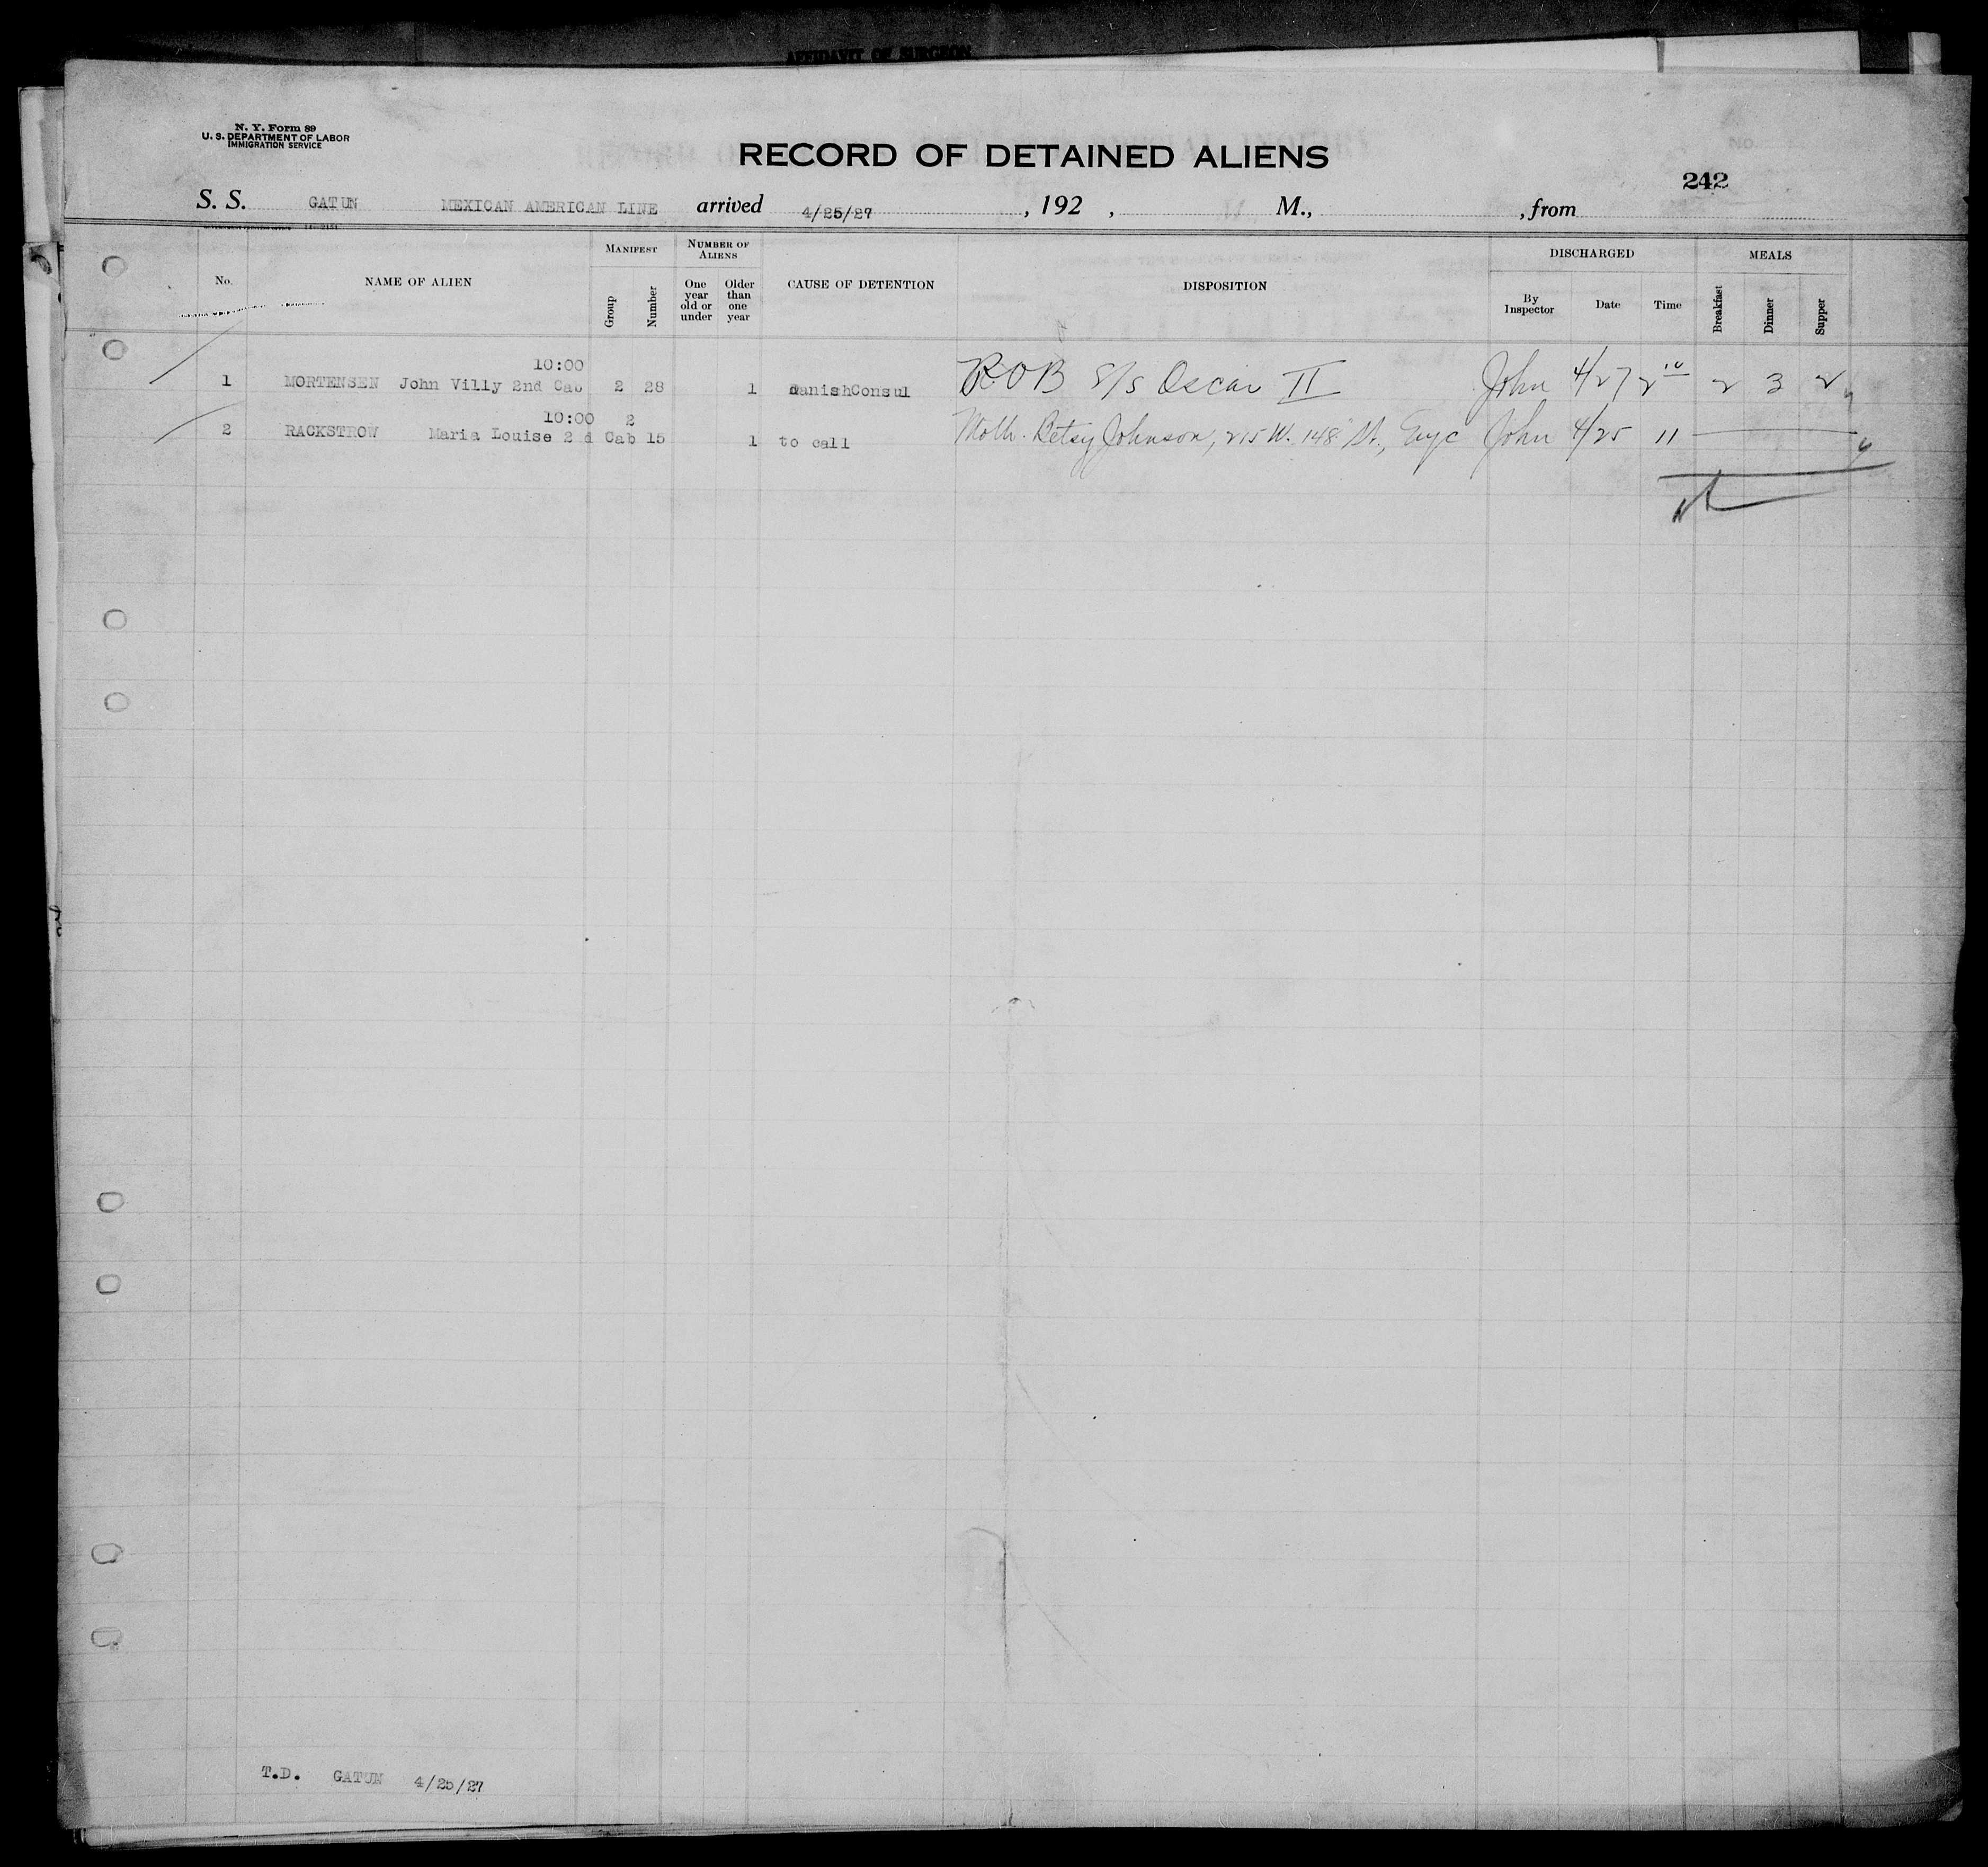 AFFIDAVIT OF SURGEON
N. Y. Form 89
U. S. DEPARTMENT OF LABOR
IMMIGRATION SERVICE
RECORD OF DETAINED ALIENS
242
S. S. GATUN MEXICAN AMERICAN LINE arrived 4/25/27 , 192 , M., , from
No. NAME OF ALIEN MANIFEST NUMBER OF ALIENS CAUSE OF DETENTION DISPOSITION DISCHARGED MEALS
Group Number One year old or under Older than one year By Inspector Date Time Breakfast Dinner Supper
10:00
1 MORTENSEN John Villy 2nd Cab 2 28 1 danishConsul ROB S/S Oscar II John 4/27 2 10 2 3 2
10:00 2
2 RACKSTROW Maria Louise 2 d Cab 15 1 to call Moth. Betsy Johnson, 215 W. 148 St., John 4/25 11
T.D. GATUN 4/25/27